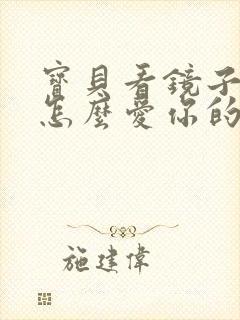 寶貝看鏡子
怎麼愛你的
施建偉